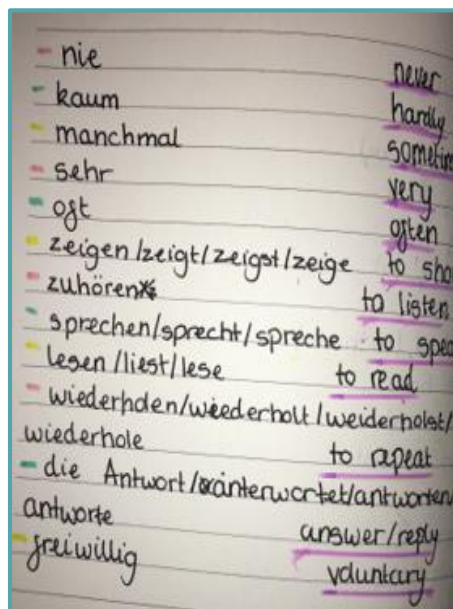 - nie never
- kaum hardly
- manchmal sometim
- sehr very
- oft often
- zeigen/zeigt/zeigst/zeige to sho
- zuhören to listen
- sprechen/sprecht/spreche to spea
- lesen/liest/lese to read
- wiederholen/wiederholt/weiderholst/
wiederhole to repeat
- die Antwort/anterwortet/antworten
antworte answer/reply
- freiwillig voluntary